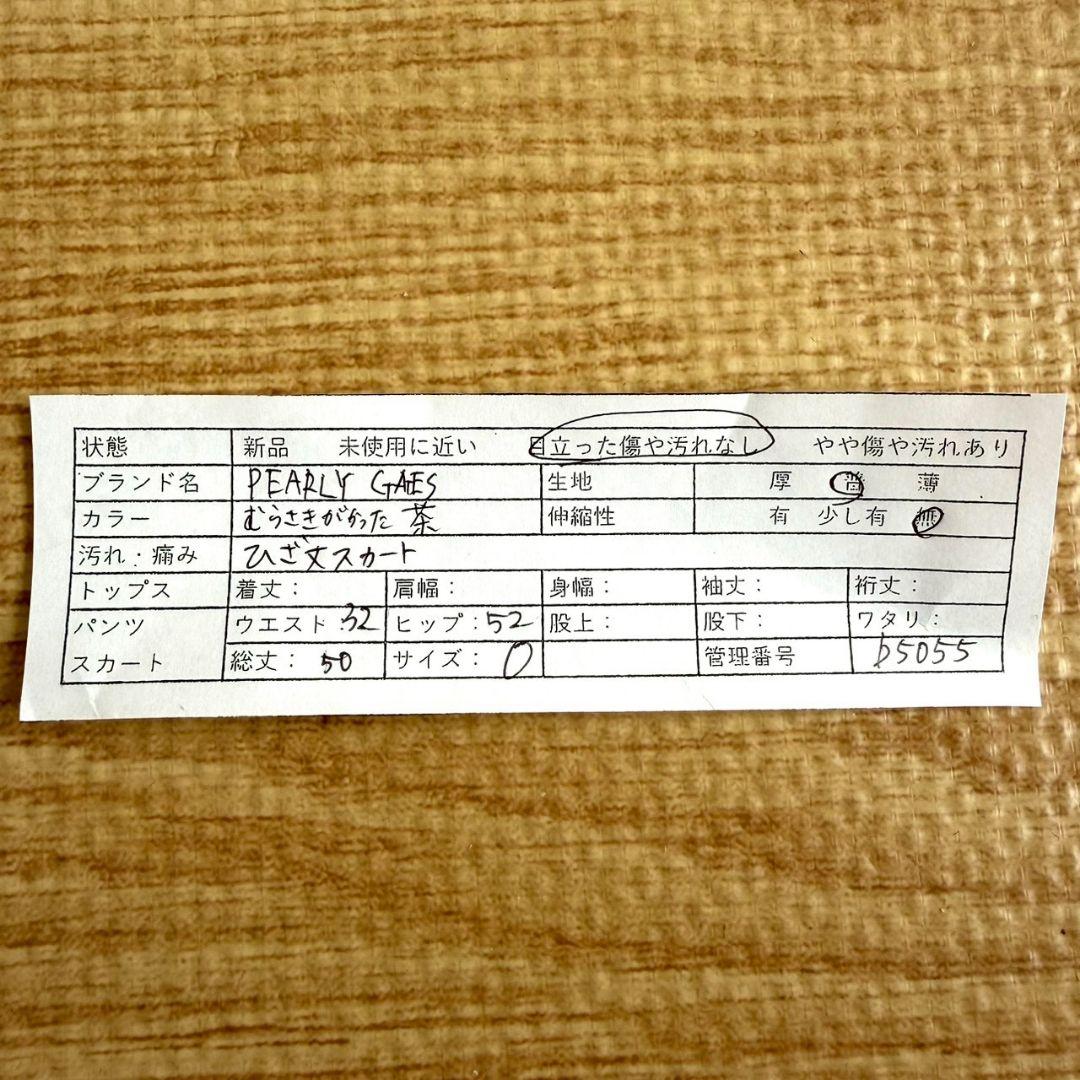 状態 新品 未使用に近い 目立った傷や汚れなし やや傷や汚れあり
ブランド名 PEARLY GAES 生地 厚 普 薄
カラー むらさきがかった茶 伸縮性 有 少し有 無
汚れ・痛み ひざ丈スカート
トップス 着丈: 肩幅: 身幅: 袖丈: 裄丈:
パンツ ウエスト:32 ヒップ:52 股上: 股下: ワタリ:
スカート 総丈:50 サイズ:0 管理番号 b5055